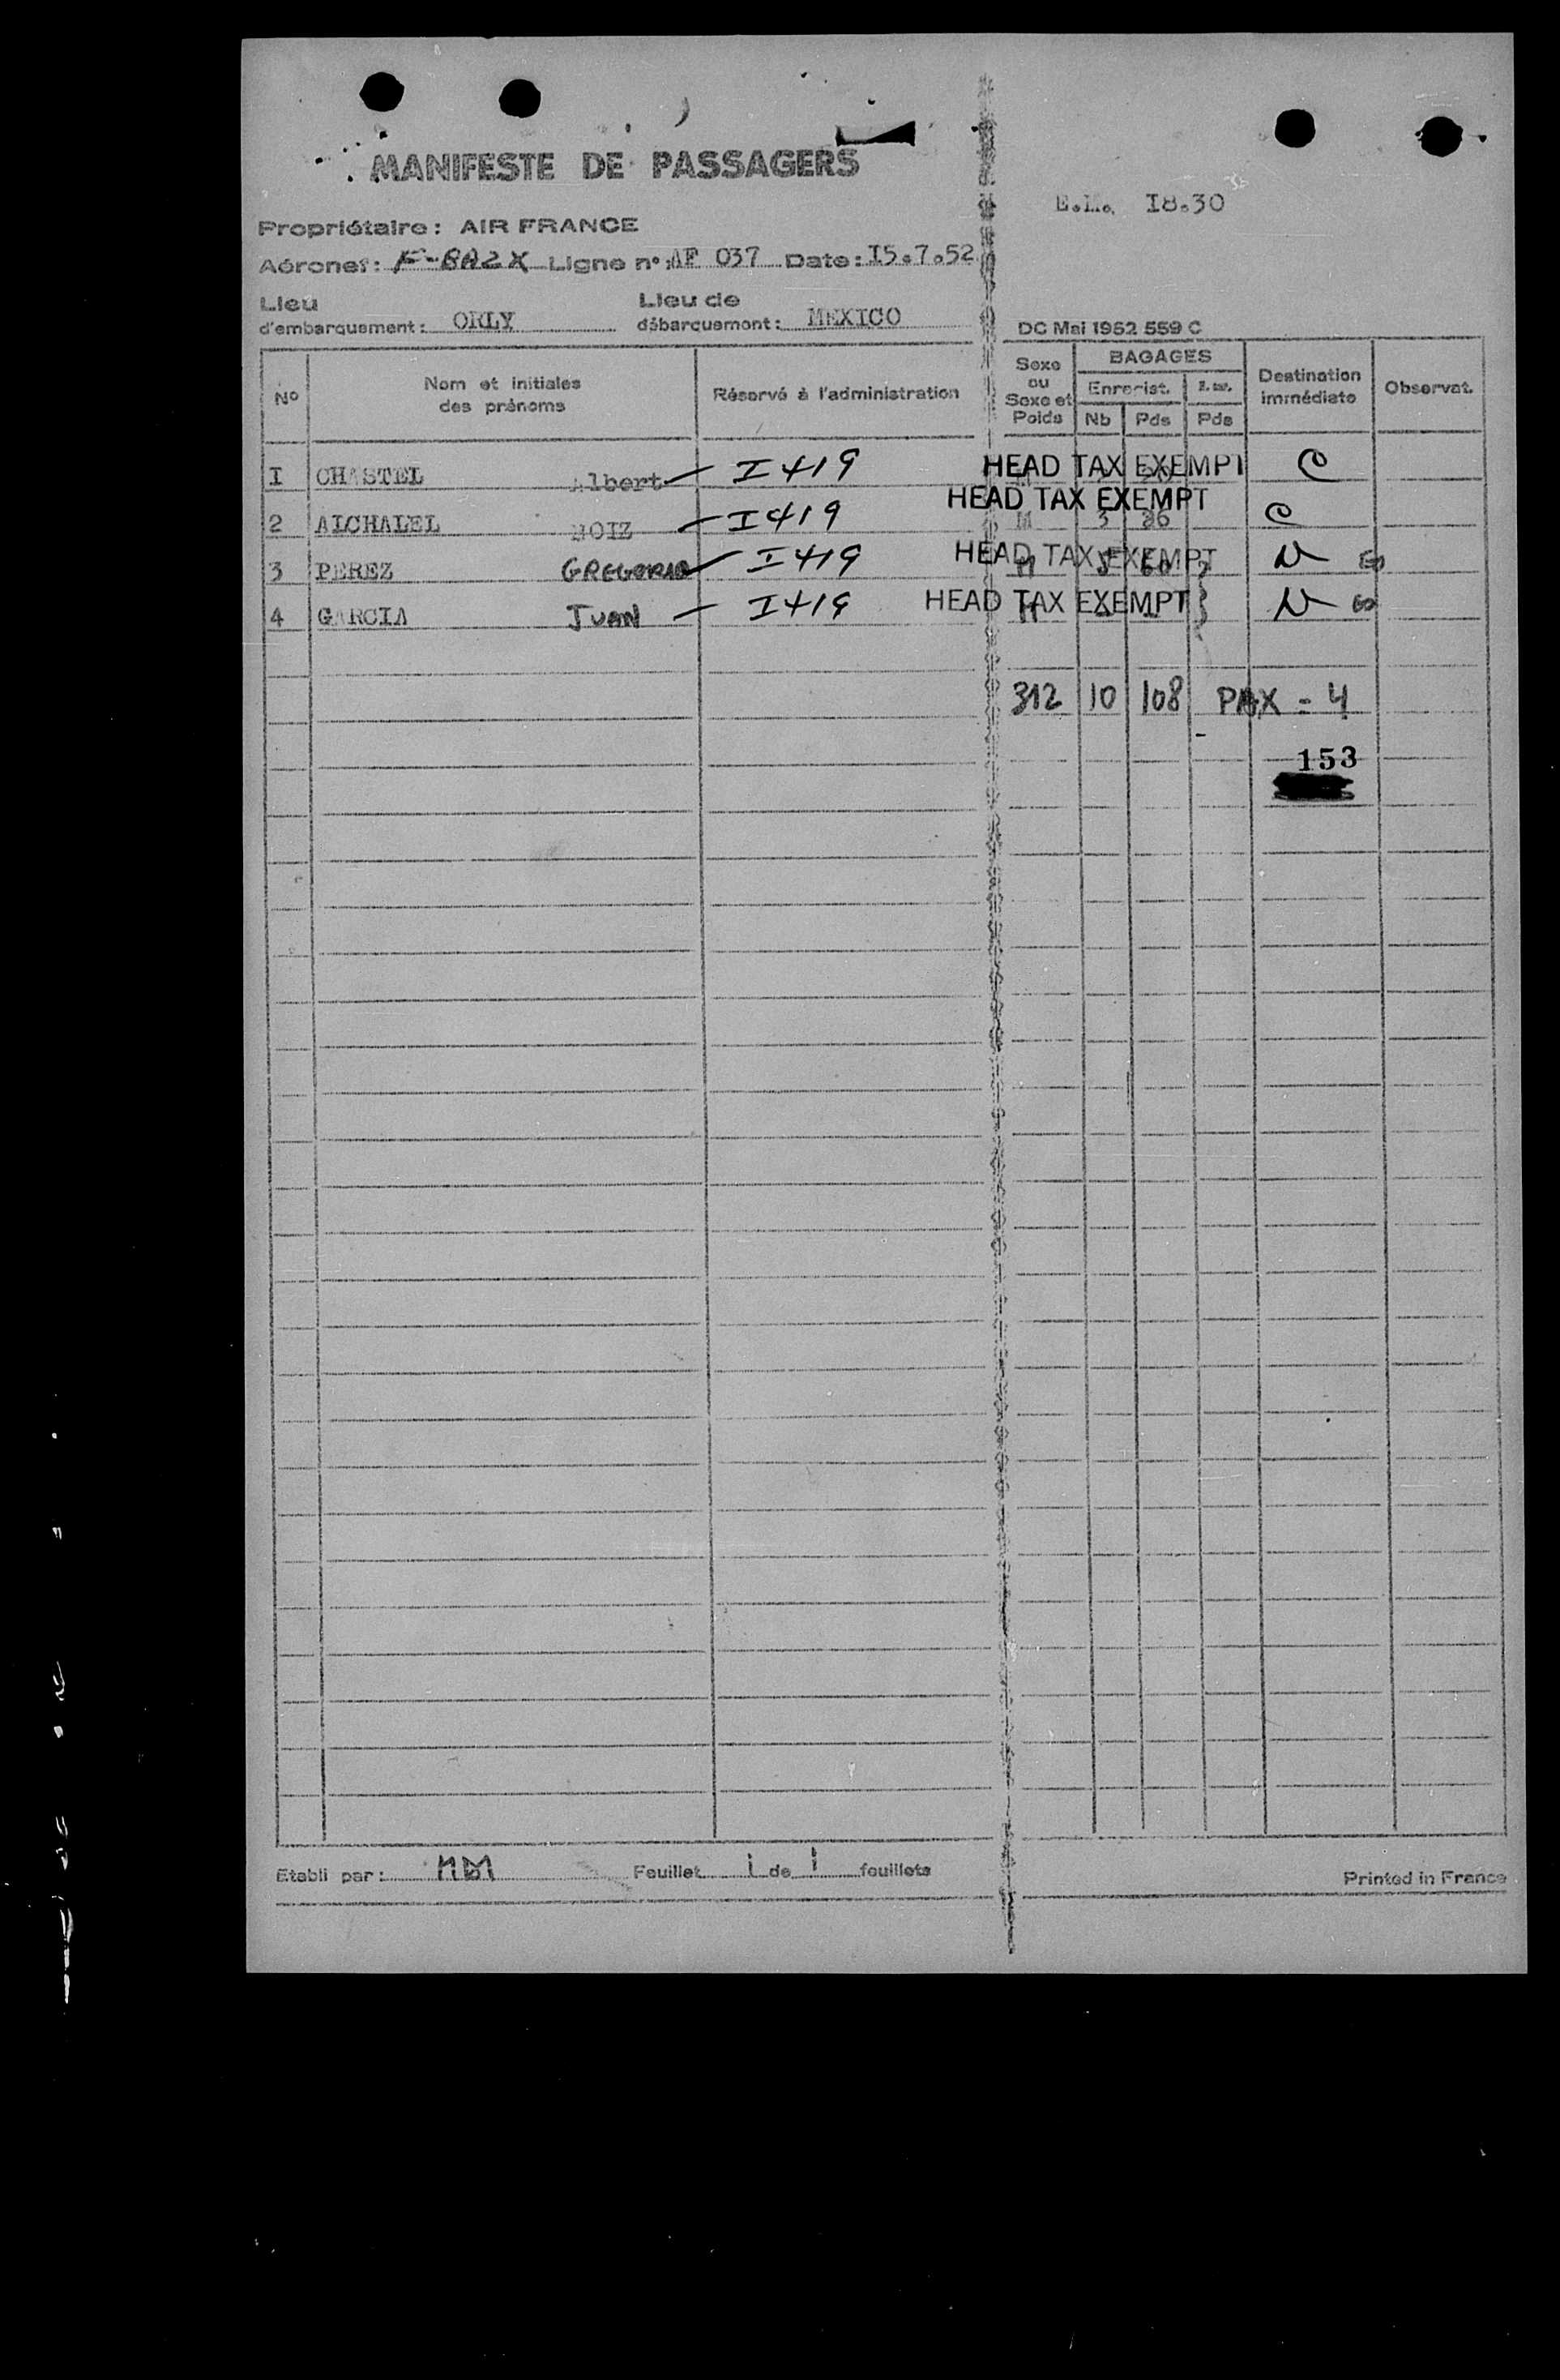 MANIFESTE DE PASSAGERS
E.M. I8.30
Propriétaire: AIR FRANCE
Aéronef: F-BAZX Ligne n°: AF 037 Date: I5.7.52
Lieu d'embarquement: ORLY Lieu de débarquement: MEXICO
DC Mai 1952 559 C
N° Nom et initiales des prénoms Réservé à l'administration Sexe ou Sexe et Poids BAGAGES Enregist. Nb Pds Pds Destination immédiate Observat.
I CHASTEL Albert I419 HEAD TAX EXEMPT C
2 AICHALEL MOIZ I419 HEAD TAX EXEMPT M 3 26 C
3 PEREZ GREGORIO I419 HEAD TAX EXEMPT M N
4 GARCIA JUAN I419 HEAD TAX EXEMPT M N
312 10 108 PAX = 4
153
Etabli par: Feuillet 1 de 1 feuillets
Printed in France